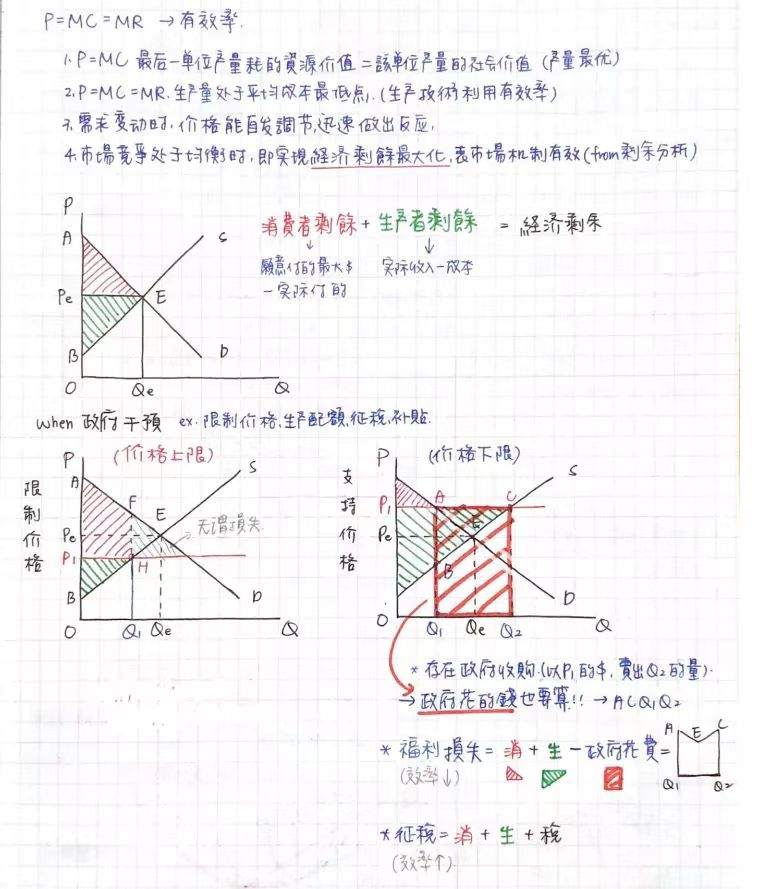 P=MC=MR → 有效率.
1. P=MC 最后一单位产量耗的資源价值 = 該单位产量的社会价值 (产量最优)
2. P=MC=MR. 生产量处于平均成本最低点. (生产技術利用有效率)
3. 需求变动时, 价格能自发調节, 迅速做出反应.
4. 市場竞爭处于均衡时, 即实現経済剩餘最大化, 表市場机制有效 (from剩余分析)
P
A
S
消費者剩餘 + 生产者剩餘 = 経済剩余
願意付的最大$
实际收入-成本
-实际付的
Pe
E
B
D
O
Qe
Q
when 政府干預 ex. 限制价格, 生产配額, 征稅, 补貼.
限制价格
P
(价格上限)
S
A
F
E
无谓損失
Pe
P1
H
B
D
O
Q1
Qe
Q
支持价格
P
(价格下限)
S
P1
A
C
Pe
E
B
D
O
Q1
Qe
Q2
Q
* 存在政府收购. (以P1的$, 賣出Q2的量).
→ 政府花的錢也要算!! → ACQ1Q2
* 福利損失 = 消 + 生 - 政府花費 =
(效率↓)
A
C
E
Q1
Q2
* 征稅 = 消 + 生 + 稅
(效率↑)